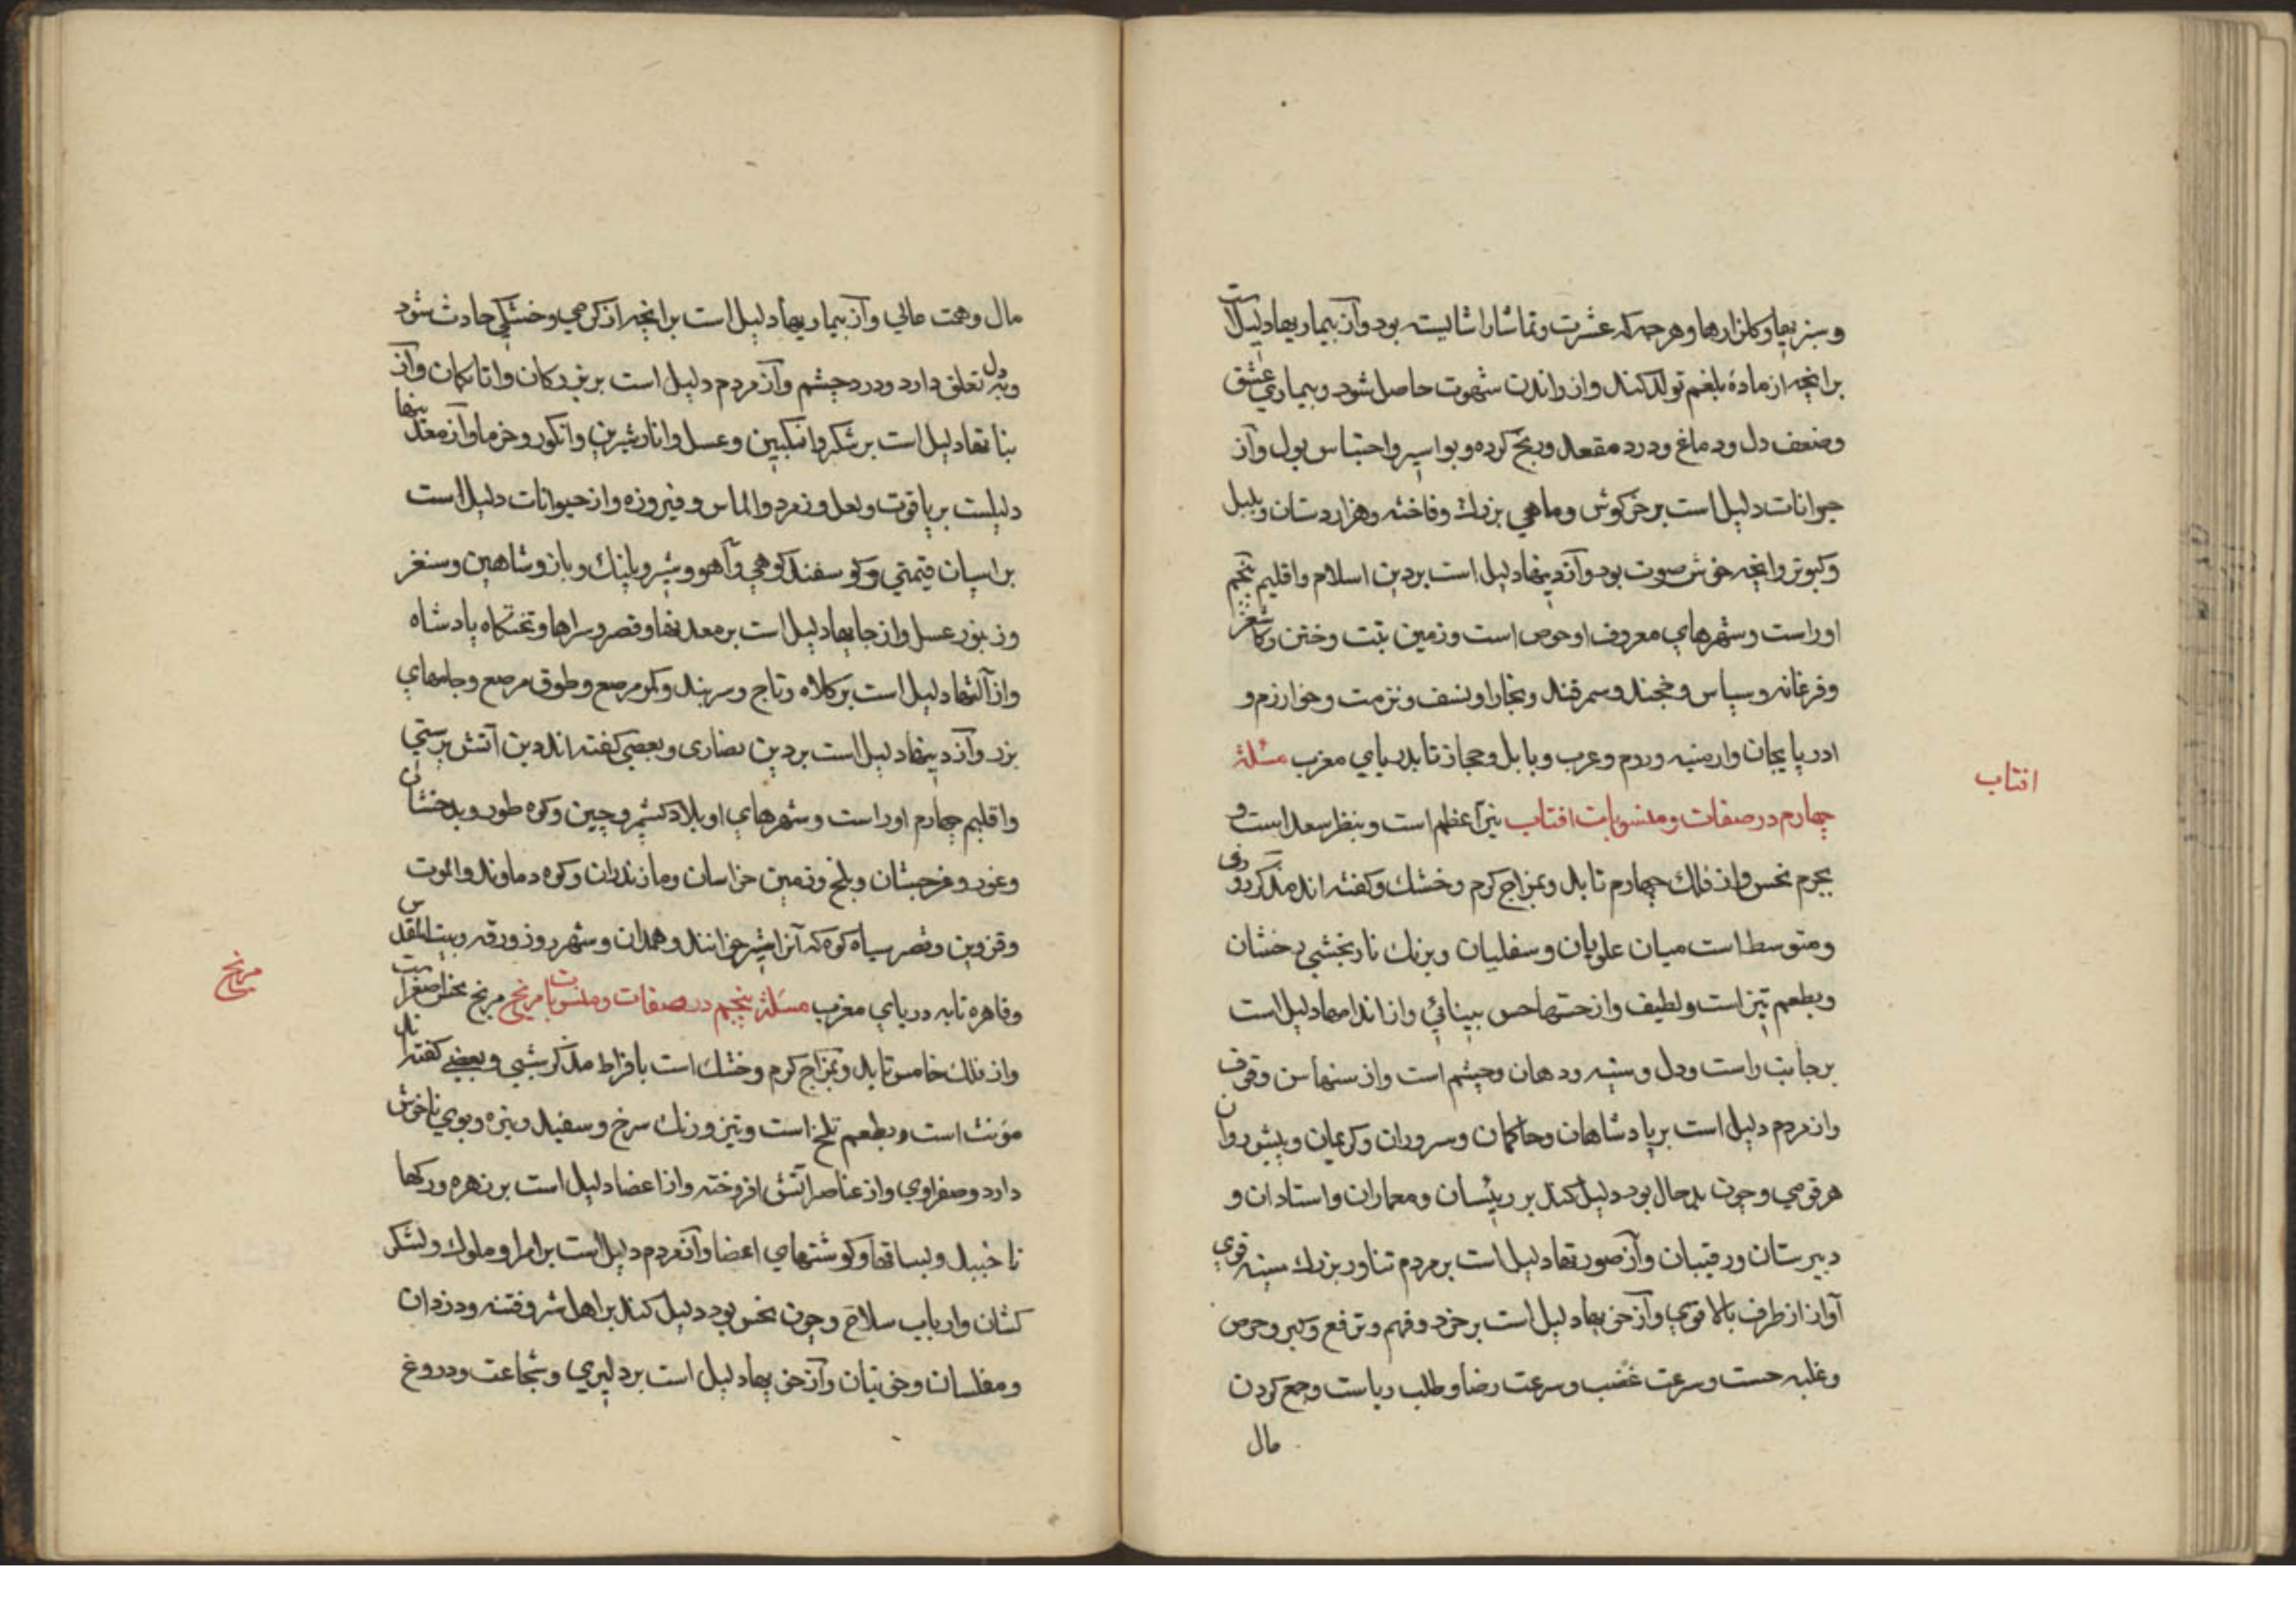 و سبزیها و کلزارها و هرچه که عشرت و تماشا را شایسته بود و آز بیماریها دلیل است
برانچه از مادهٔ بلغم تولد کند و از راندن شهوت حاصل شود و بیماری عشق
وضعف دل و دماغ و درد مقعد و رنج کرده و بواسیر و احتباس بول و آز
حیوانات دلیل است بر خرکوش و ماهی بزرك و فاخته و هزاردستان و بلبل
و کبوتر و انچه خوش صوت بود و آز دینها دلیل است بر دین اسلام و اقلیم پنجم
اوراست و شهرهای معروف او حوص است و زمین تبت و ختن و کاشغر
و فرغانه و سپاس و خجند و سمرقند و بخارا و نسف و ترمت و خوارزم و
ادربایجان و ارمنیه و روم و عرب و بابل و حجاز تا بدریای مغرب مسئلهٔ
چهارم در صفات و منسوبات افتاب نیر اعظم است و بنظر سعد است و
بجرم نحس و از فلك چهارم تابد و بمزاج کرم و خشك و کفته اند مذکر روزی
و متوسط است میان علویان و سفلیان و برنك نارنجشی درخشان
و بطعم تیز است و لطیف و از حسها حس بینائی و از اندامها دلیل است
بر جانب راست و دل و سینه و دهان و چشم است و از سنها سن وقوف
و از مردم دلیل است بر پادشاهان و حاکمان و سروران و کریمان و پیشروان
هر قومی و چون بدحال بود دلیل کند بر رییسان و معماران و استادان و
دبیرستان و رقیبان و آز صورتها دلیل است بر مردم تناور بزرك سینه قوی
آواز از طرف بالا قوی و آز خویها دلیل است بر خرد و فهم و ترفع و کبر و حرص
و غلبه حست و سرعت غضب و سرعت رضا و طلب ریاست و جمع کردن
مال
افتاب
مال و همت عالی و آز بیماریها دلیل است برانچه از کرمی و خشکی حادث شود
و بدل تعلق دارد و درد چشم و آز مردم دلیل است بر بزرکان و اتابکان و آز
نباتها دلیل است بر شکر و انکبین و عسل و انار شیرین و انکور و خرما و آز معدنیها
دلیلست بر یاقوت و لعل و زمرد و الماس و فیروزه و از حیوانات دلیل است
بر اسپان قیمتی و کوسفند کوهی و آهو و شیر و پلنك و باز و شاهین و سنغر
و زنبور عسل و از جایها دلیل است بر معدنها و قصر و سراها و تختکاه پادشاه
و از آلتها دلیل است بر کلاه و تاج و سربند و کمر مرصع و طوق مرصع و جامهای
بزر و آز دینها دلیل است بر دین نصاری و بعضی کفته اند دین آتش پرستی
و اقلیم چهارم اوراست و شهرهای او بلاد کشمر و چین و کوه طور و بدخشان
و غور و غرجستان و بلخ و زمین خراسان و مازندران و کوه دماوند و الموت
و قزوین و قصر سیاه کوه که آنرا شیر خوانند و همدان و شهر روز و رقه و بیت المقدس
و قاهره تا به دریای مغرب مسئلهٔ پنجم در صفات و منسوبات مریخ مریخ نحس اصغر است
و از فلك خامس تابد و بمزاج کرم و خشك است بافراط مذکر شبی و بعضی کفته اند
مؤنث است و بطعم تلخ است و تیز و رنك سرخ و سفید و تیره و بوی ناخوش
دارد و صفراوی و از عناصر آتش افروخته و از اعضا دلیل است بر زهره و رکها
نا خبیل و بساقها و کوشتهای اعضا و آز مردم دلیل است بر امرا و ملوك و لشکر
کشان و ارباب سلاح و چون نحس بود دلیل کند بر اهل شر و فتنه و دزدان
و مفلسان و خونیان و آز خویها دلیل است بر دلیری و شجاعت و دروغ
مریخ